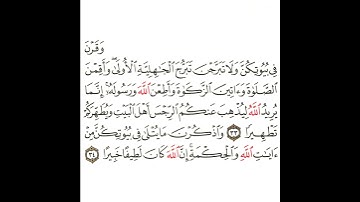 وَقَرْنَ
فِي بُيُوتِكُنَّ وَلَا تَبَرَّجْنَ تَبَرُّجَ الْجَٰهِلِيَّةِ الْأُولَىٰ وَأَقِمْنَ
الصَّلَوٰةَ وَءَاتِينَ الزَّكَوٰةَ وَأَطِعْنَ اللَّهَ وَرَسُولَهُۥ إِنَّمَا
يُرِيدُ اللَّهُ لِيُذْهِبَ عَنكُمُ الرِّجْسَ أَهْلَ الْبَيْتِ وَيُطَهِّرَكُمْ
تَطْهِيرًا ٣٣ وَاذْكُرْنَ مَا يُتْلَىٰ فِي بُيُوتِكُنَّ مِنْ
ءَايَٰتِ اللَّهِ وَالْحِكْمَةِ إِنَّ اللَّهَ كَانَ لَطِيفًا خَبِيرًا ٣٤